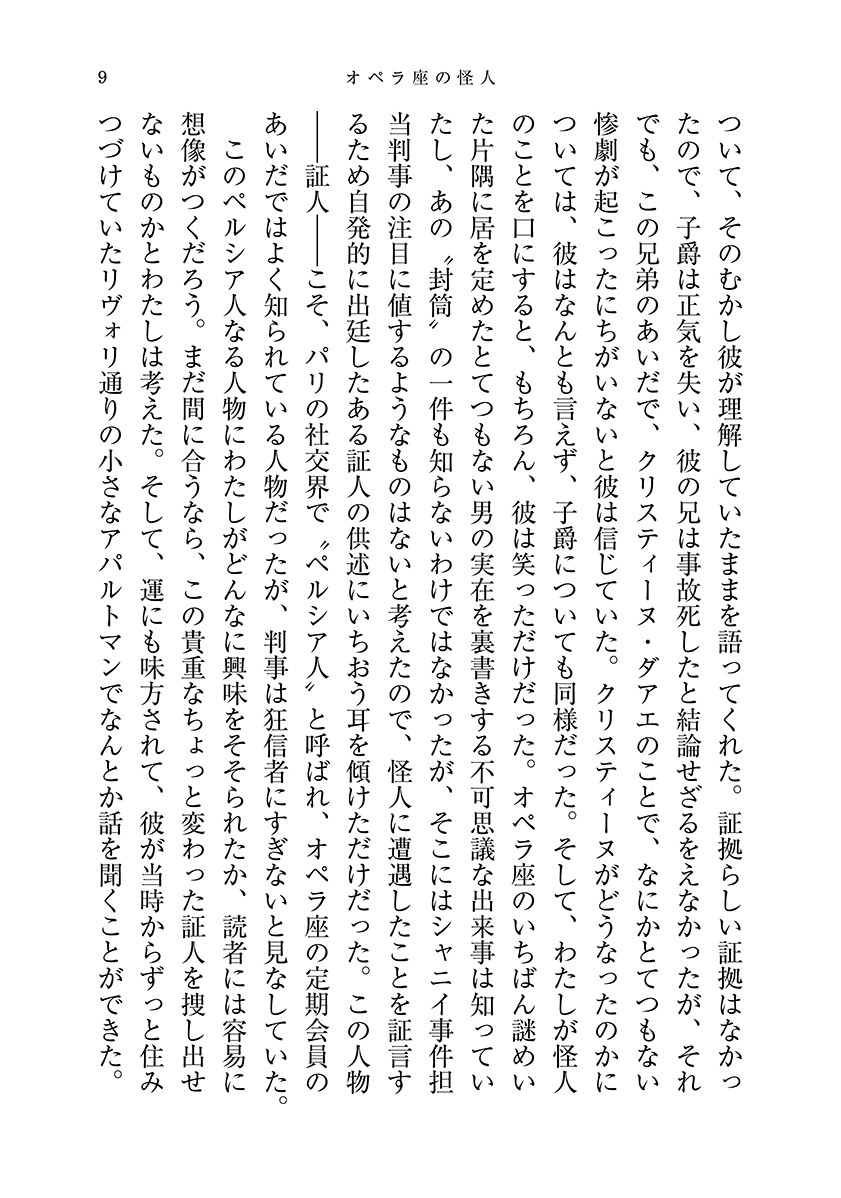 9
オペラ座の怪人
ついて、そのむかし彼が理解していたままを語ってくれた。証拠らしい証拠はなかっ
たので、子爵は正気を失い、彼の兄は事故死したと結論せざるをえなかったが、それ
でも、この兄弟のあいだで、クリスティーヌ・ダアエのことで、なにかとてつもない
惨劇が起こったにちがいないと彼は信じていた。クリスティーヌがどうなったのかに
ついては、彼はなんとも言えず、子爵についても同様だった。そして、わたしが怪人
のことを口にすると、もちろん、彼は笑っただけだった。オペラ座のいちばん謎めい
た片隅に居を定めたとてつもない男の実在を裏書きする不可思議な出来事は知ってい
たし、あの〝封筒〟の一件も知らないわけではなかったが、そこにはシャニイ事件担
当判事の注目に値するようなものはないと考えたので、怪人に遭遇したことを証言す
るため自発的に出廷したある証人の供述にいちおう耳を傾けただけだった。この人物
――証人――こそ、パリの社交界で〝ペルシア人〟と呼ばれ、オペラ座の定期会員の
あいだではよく知られている人物だったが、判事は狂信者にすぎないと見なしていた。
このペルシア人なる人物にわたしがどんなに興味をそそられたか、読者には容易に
想像がつくだろう。まだ間に合うなら、この貴重なちょっと変わった証人を捜し出せ
ないものかとわたしは考えた。そして、運にも味方されて、彼が当時からずっと住み
つづけていたリヴォリ通りの小さなアパルトマンでなんとか話を聞くことができた。